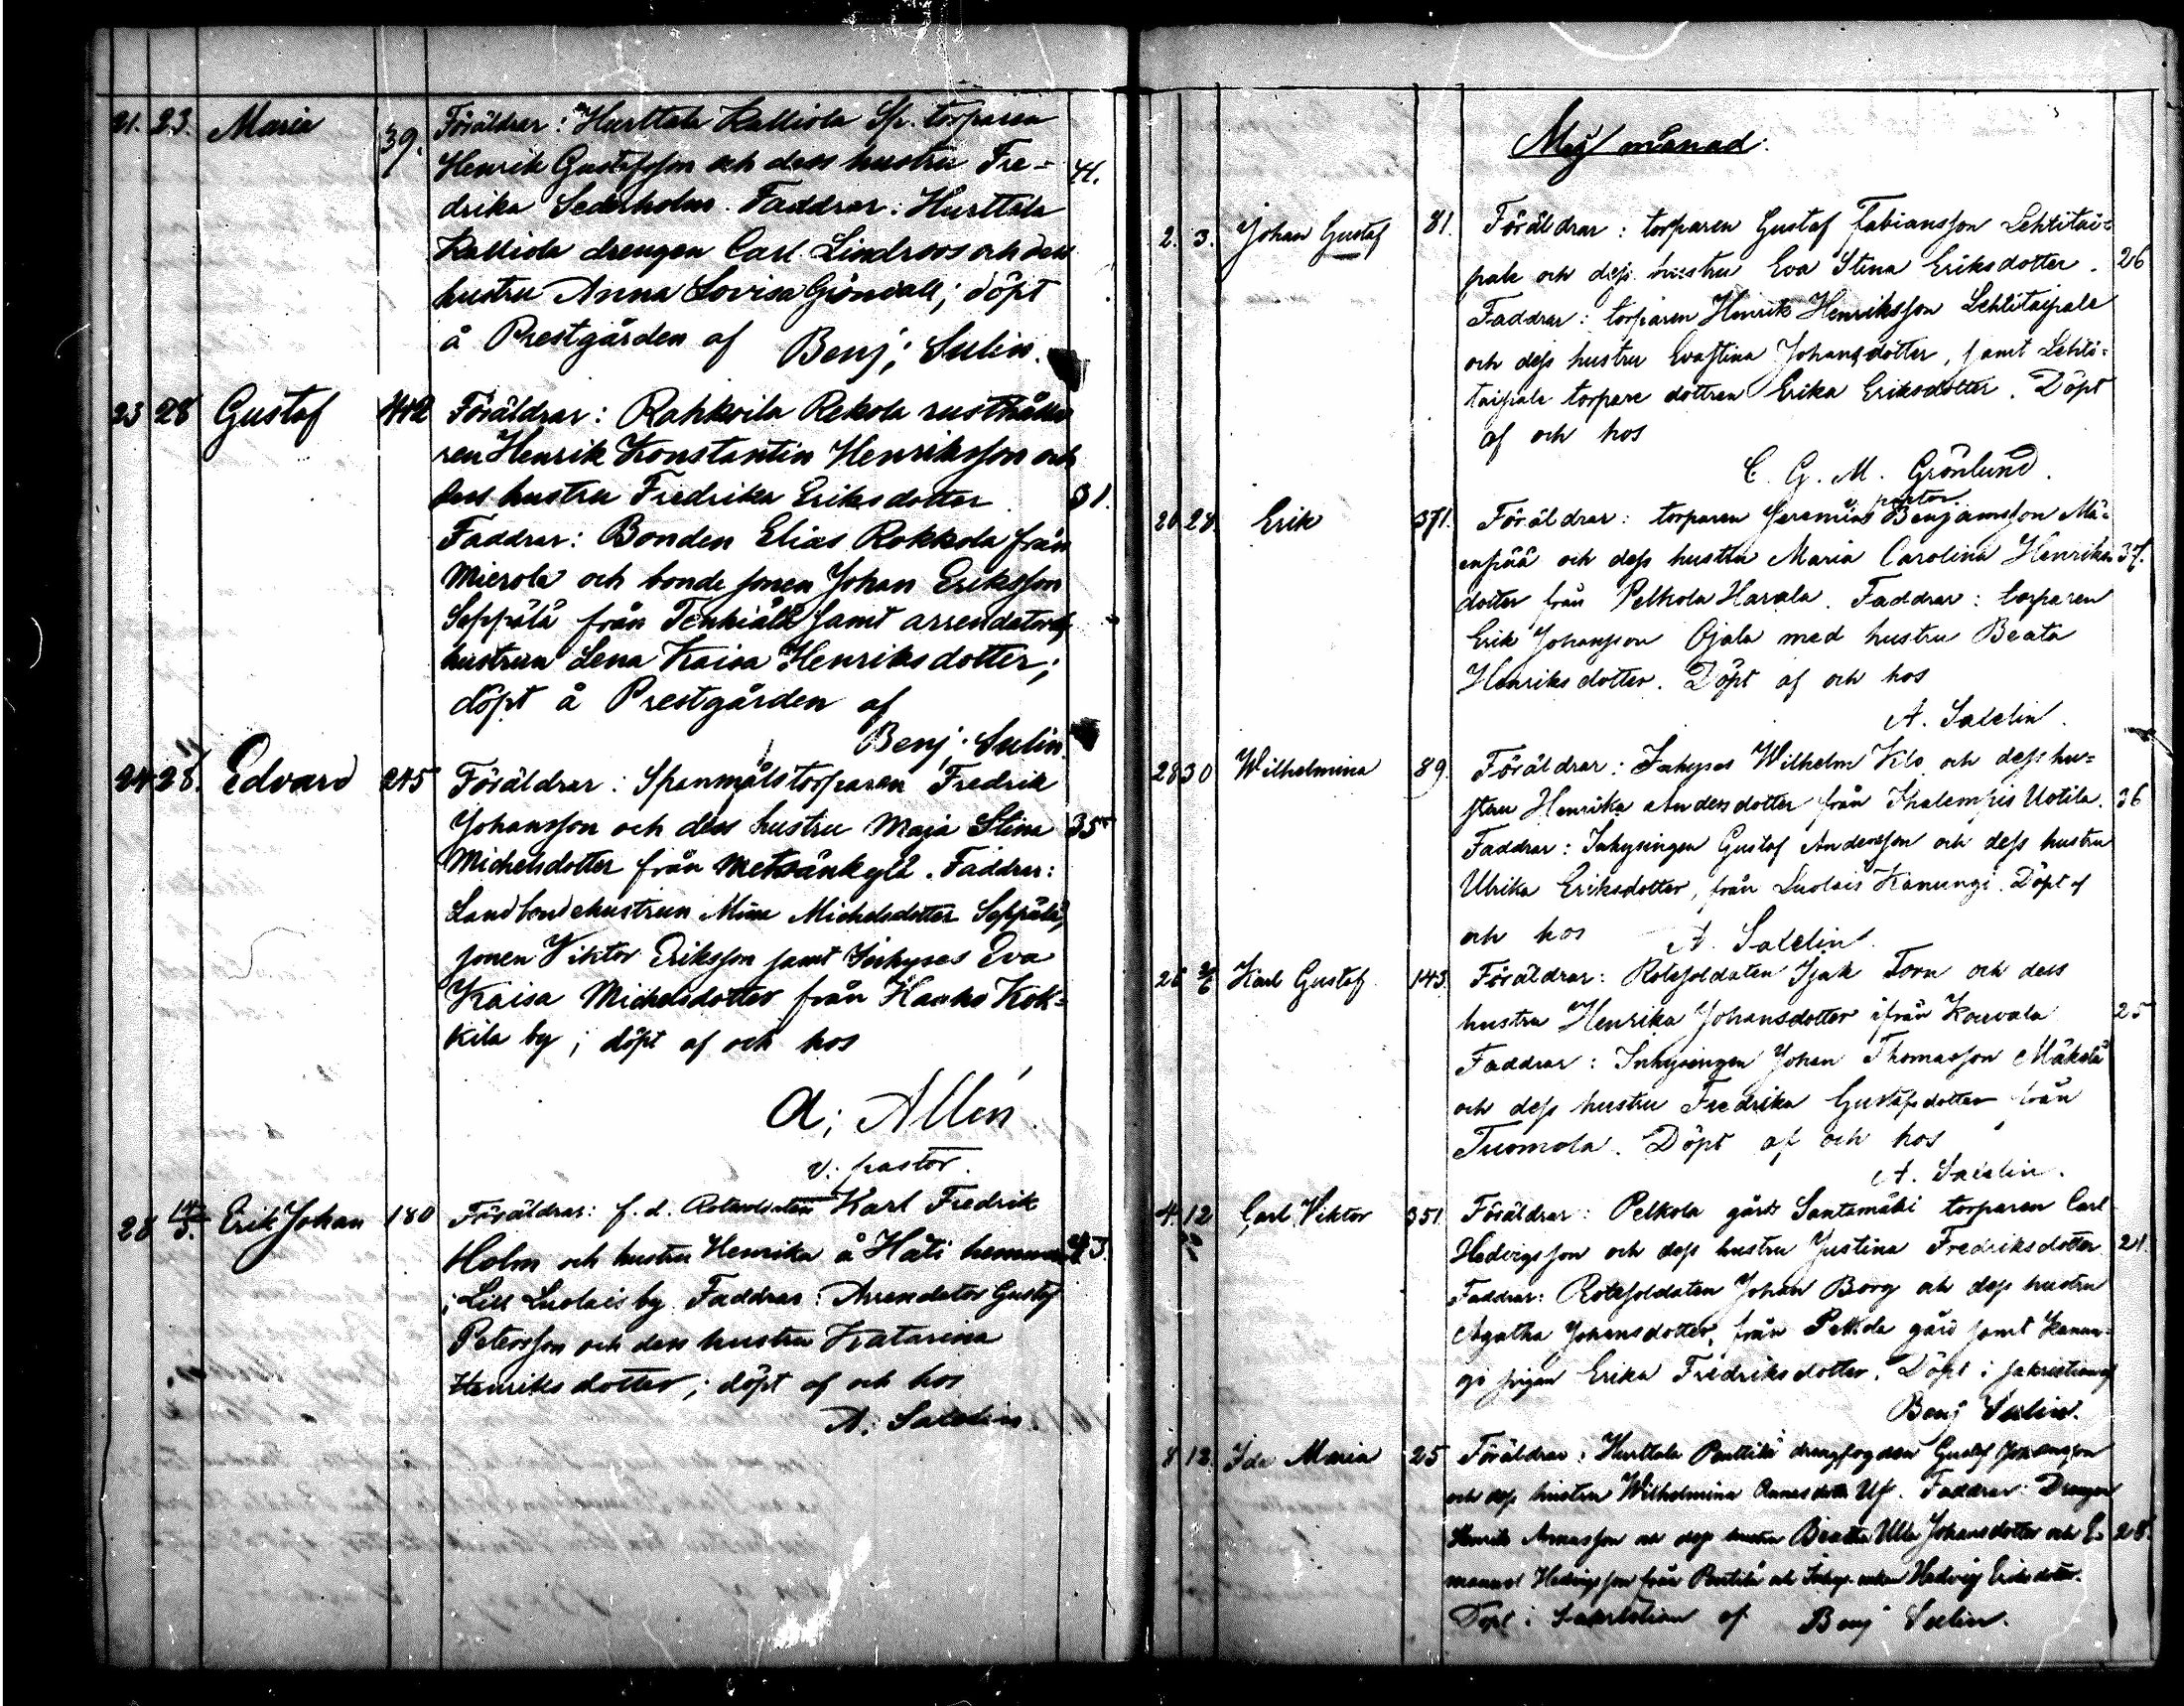 21. 23. Maria 39. Föräldrar: Hurttala Kalliola Sp. torparen
Henrik Gustafsson och dess hustru Fre-
41.
drika Sederholm. Faddrar: Hurttala
Kalliola drengen Carl Lindroos och dess
hustru Anna Lovisa Gröndall; döpt
å Prestgården af Benj; Sulin.
23 28 Gustaf 442 Föräldrar: Rahkoila Rekola rusthålla
ren Henrik Konstantin Henriksson och
dess hustru Fredrika Eriksdotter. 31.
Faddrar: Bonden Elias Rokkola från
Mierola och bonde sonen Johan Eriksson
Seppälä från Tenhiälä samt arrendators
hustrun Lena Kaisa Henriksdotter;
döpt å Prestgården af
Benj; Sulin.
24 28. Edvard 245 Föräldrar: Spanmålstorparen Fredrik
Johansson och dess hustru Maja Stina 35
Michelsdotter från Metsänkylä. Faddrar:
Landbondehustrun Mina Michelsdotter Seppälä,
sonen Viktor Eriksson samt Inhyses Eva
Kaisa Michelsdotter från Hauho Kok-
kila by; döpt af och hos
A; Allén.
v. pastor.
28 14/5. Erik Johan 180 Föräldrar: f. d. Rotesoldaten Karl Fredrik
Holm och hustru Henrika å Häti hemman 43.
i Lill Luolais by. Faddrar: Arrendator Gustaf
Petersson och dess hustru Katarina
Henriksdotter; döpt af och hos
A. Salelin.
Maj månad.
2. 3. Johan Gustaf 81. Föräldrar: torparen Gustaf Fabiansson Lehtitai-
pale och dess hustru Eva Stina Eriksdotter. 26
Faddrar: torparen Henrik Henriksson Lehtitaipale
och dess hustru Evastina Johansdotter, samt Lehti-
taipale torpare dottren Erika Eriksdotter. Döpt
af och hos
C. G. M. Grönlund.
v. pastor
20. 28. Erik 371. Föräldrar: torparen Jeremias Benjamsson Mä-
enpää och dess hustru Maria Carolina Henriks- 37.
dotter från Pelkola Harala. Faddrar: torparen
Erik Johansson Ojala med hustru Beata
Henriksdotter. Döpt af och hos
A. Salelin.
28 30 Wilhelmina 89. Föräldrar: Inhyses Wilhelm Kilo och dess hu-
stru Henrika Andersdotter från Kalempis Uotila. 36
Faddrar: Inhysingen Gustaf Andersson och dess hustru
Ulrika Eriksdotter, från Luolais Kanungi. Döpt af
och hos A. Salelin.
26 Karl Gustaf 143. Föräldrar: Rotesoldaten Isak Torn och dess
hustru Henrika Johansdotter ifrån Kouvala 25
Faddrar: Inhysingen Johan Thomasson Mäkelä
och dess hustru Fredrika Gustafsdotter från
Tuomola. Döpt af och hos
A. Salelin.
4. 12 Carl Viktor 351. Föräldrar: Pelkola gårds Santamäki torparen Carl
Hedvigsson och dess hustru Justina Fredriksdotter 21.
Faddrar: Rotesoldaten Johan Borg och dess hustru
Agatha Johansdotter, från Pelkola gård samt Kanun-
gi pigan Erika Fredriksdotter. Döpt i sakristian af
Benj Sulin.
8 12. Ida Maria 25 Föräldrar: Hurttala Penttilä drengfogden Gustaf Johansson
och dess hustru Wilhelmina Faddrar: Drengen
Henrik och dess hustru Beata Ulla Johansdotter och E- 28.
manuel Hedvigsson från Penttilä och Hedvig Eriksdotter.
Döpt i Sakristian af Benj Sulin.